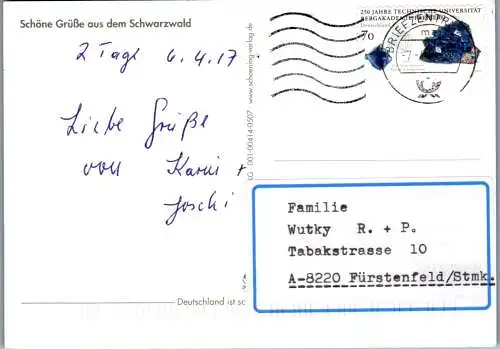 Schöne Grüße aus dem Schwarzwald
2 Tage 6.4.17
Liebe Grüße
von Karin +
Joschi
www.schoening-verlag.de
001-00414-0507
250 JAHRE TECHNISCHE UNIVERSITÄT
BERGAKADEMIE FREIBERG
Deutschland
70
BRIEFZENTRUM
Familie
Wutky R. + P.
Tabakstrasse 10
A-8220 Fürstenfeld/Stmk.
Deutschland ist